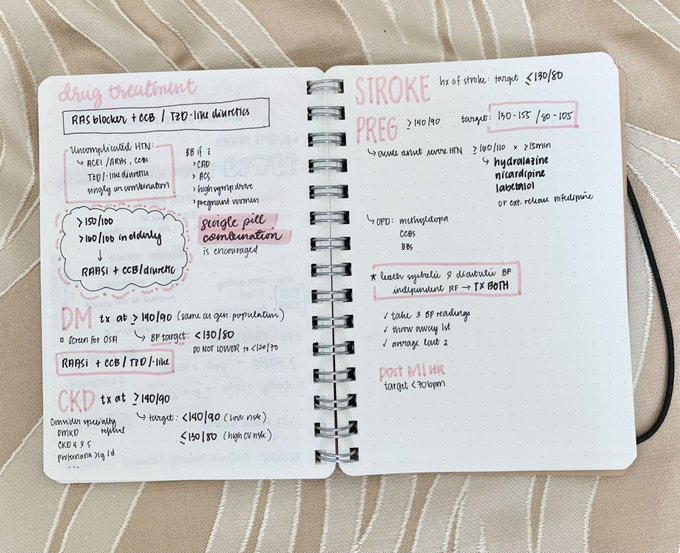 drug treatment
RAS blocker + CCB / TZD-like diuretics
Uncomplicated HTN:
ACEI / ARBs, CCBs
TZD/-like diuretic
singly or combination
BB if ?
> CAD
> ACS
> high symp drive
> pregnant women
> 150/100
> 160/100 in elderly
↓
RAASi + CCB/diuretic
single pill
combination
is encouraged
DM tx at ≥ 140/90 (same as gen. population)
screen for OSA ↳ BP target: < 130/80
DO NOT LOWER to <120/70
RAASi + CCB / TZD/-like
CKD tx at ≥ 140/90
↳ target: <140/90 (low risk)
≤130/80 (high CV risk)
Consider specialty
referral
DMKD
CKD 4 & 5
proteinuria >1g/d
...
STROKE hx of stroke: target ≤130/80
PREG ≥ 140/90 target: 130-155 / 80-105
→ acute onset severe HTN ≥ 160/110 × ≥15min
↳ hydralazine
nicardipine
labetalol
or ext. release nifedipine
↳ OPD: methyldopa
CCBs
BBs
* both systolic & diastolic BP
independent RF → TX BOTH
✓ take 3 BP readings
✓ throw away 1st
✓ average last 2
post MI HR
target <70bpm